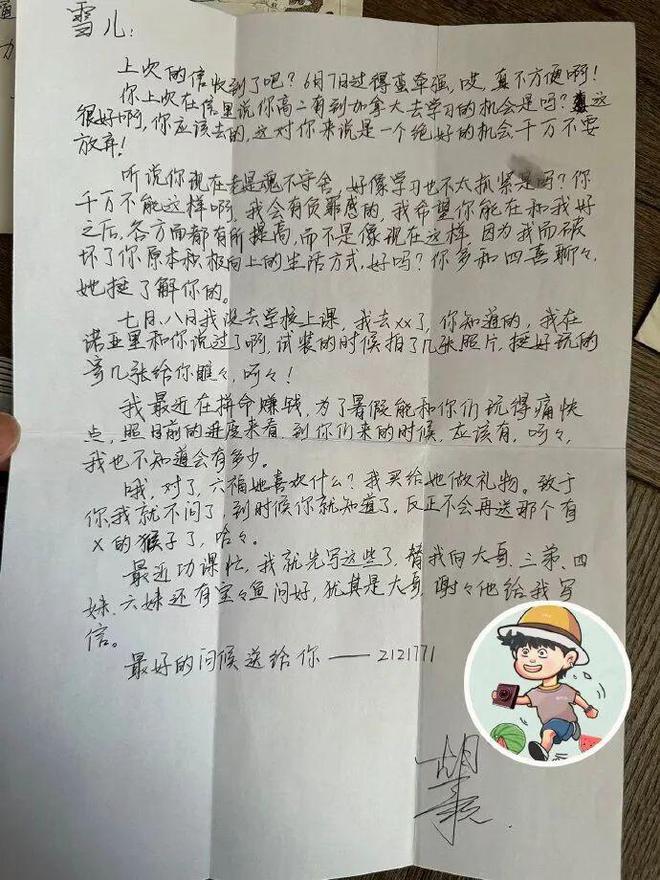 雪儿:
上次的信收到了吧?6月7日过得蛮牵强,哎,真不方便啊!
你上次在信里说你高二有到加拿大去学习的机会是吗?这
很好啊,你应该去的,这对你来说是一个绝好的机会千万不要
放弃!
听说你现在老是魂不守舍,好像学习也不太抓紧是吗?你
千万不能这样啊,我会有负罪感的,我希望你能在和我好
之后,各方面都有所提高,而不是像现在这样,因为我而破
坏了你原本积极向上的生活方式,好吗?你多和四喜聊々,
她挺了解你的。
七日、八日我没去学校上课,我去xx了,你知道的,我在
诺亚里和你说过了啊,试装的时候拍了几张照片,挺好玩的
寄几张给你瞧々,呵々!
我最近在拼命赚钱,为了暑假能和你们玩得痛快
点,照目前的进度来看,到你们来的时候,应该有,呵々,
我也不知道会有多少。
哦,对了,六福她喜欢什么?我买给她做礼物。致于
你我就不问了,到时候你就知道了,反正不会再送那个有
x的猴子了,哈々。
最近功课忙,我就先写这些了,替我向大哥、三弟、四
妹、六妹还有宝々鱼问好,犹其是大哥,谢々他给我写
信。
最好的问候送给你——2121771
胡